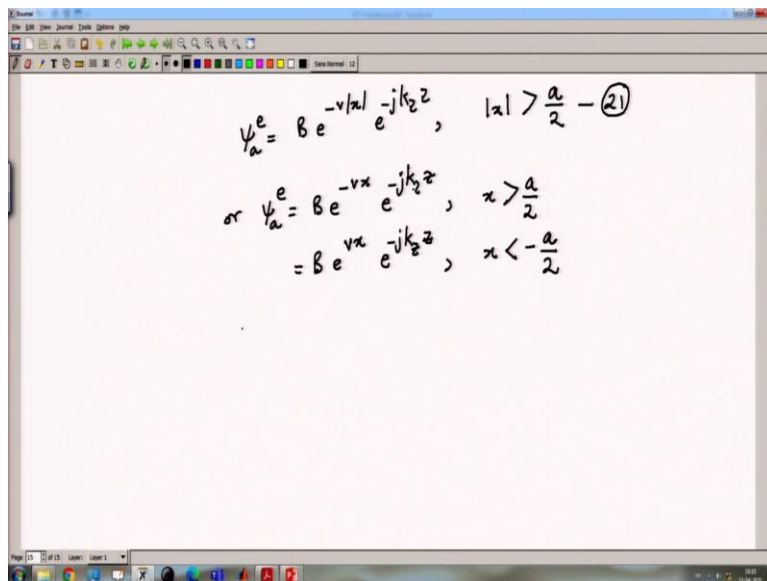 Xournal
File Edit View Journal Tools Options Help
Sans Normal 12
ψₐᵉ = B e^{-v|x|} e^{-jk_z z}, |x| > a/2 - (21)
or ψₐᵉ = B e^{-vx} e^{-jk_z z}, x > a/2
= B e^{vx} e^{-jk_z z}, x < -a/2
Page 15 of 15 Layer: Layer 1